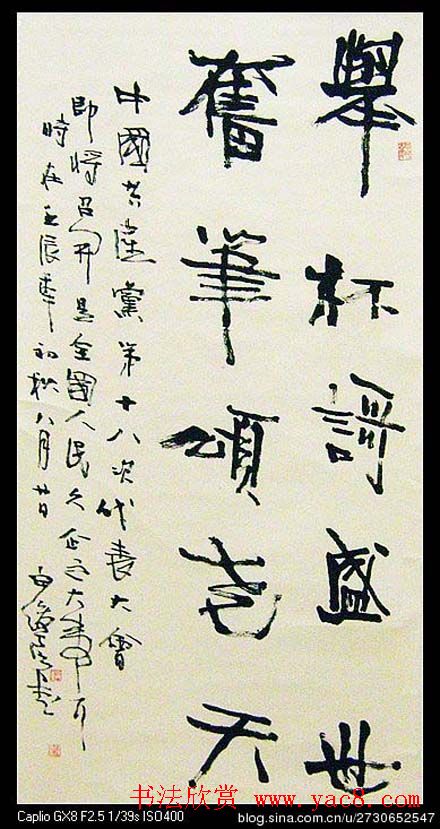 舉杯謌盛世
奮筆頌堯天
中國共産黨第十八次代表大會
即將召開是全國人民久企之大事
時在壬辰年初秋八月
书法欣赏 www.yac8.com
Caplio GX8 F2.5 1/39s ISO400
blog.sina.com.cn/u/2730652547